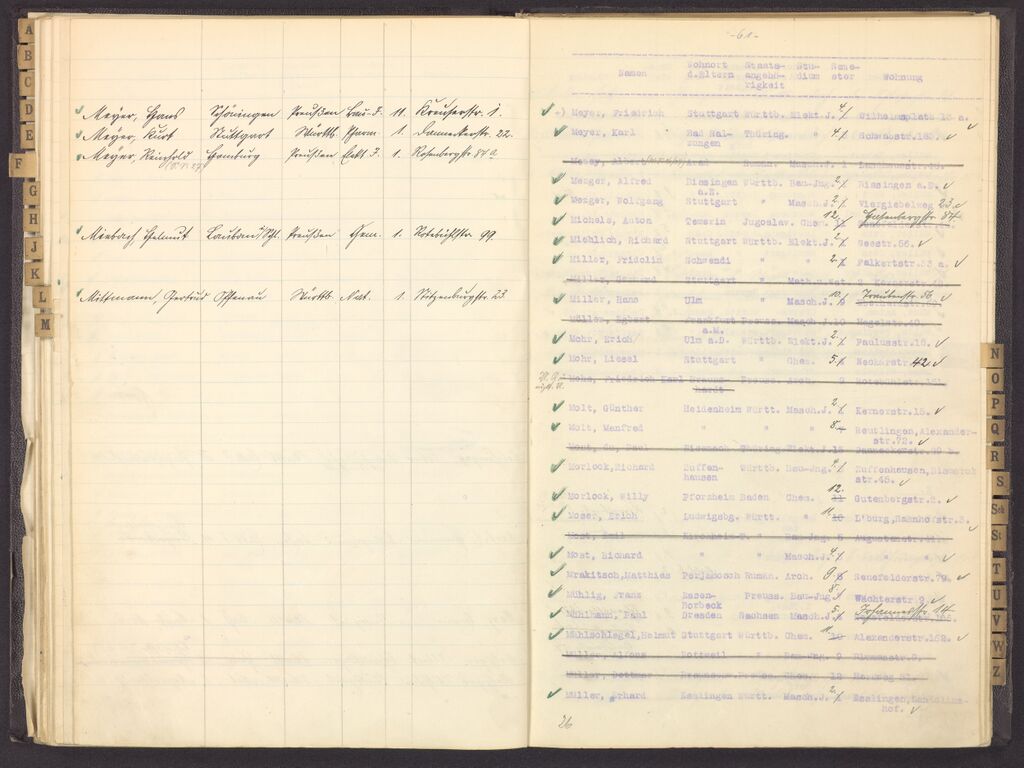 A
B
C
D
E
F
G
H
J
K
L
M
Meyer, Hans Schöningen Preußen Bau-J. 11. Kreuserstr. 1.
Meyer, Kurt Stuttgart Württb. Pharm. 1. Danneckerstr. 22.
Meyer, Reinhold Hamburg Preußen Elekt. J. 1. Rosenbergstr. 87a
Miebach Helmut Lauban/Schl. Preußen Chem. 1. Rotebühlstr. 99.
Mittmann, Gertrud Oppenau Württb. Nat. 1. Stitzenburgstr. 23.
-61-
Namen Wohnort d.Eltern Staats-angehö-rigkeit Stu-dium Seme-ster Wohnung
Meyer, Friedrich Stuttgart Württb. Elekt.J. 4 Wilhelmsplatz 13 a.
Meyer, Karl Bad Sal- Thüring. " 4. Schwabstr.
zungen
Mezger, Alfred Bissingen Württb. Bau-Jng. 2. Bissingen a.E.
a.E.
Mezger, Wolfgang Stuttgart " Masch.J. 2. Viergiebelweg 23.
Michels, Anton Temerin Jugoslav. Chem. 12.
Miehlich, Richard Stuttgart Württb. Elekt.J. Seestr.56.
Miller, Fridolin Schwendi " " 2. Falkertstr.53 a.
Miller, Gerhard Stuttgart
Miller, Hans Ulm " Masch.J. 10. Traubenstr. 56
Müller, Egbert Frankfurt Preuss. Masch.J.10 Hegelstr.40.
a.M.
Mohr, Erich Ulm a.D. Württb. Elekt.J. 2. Paulusstr.16.
Mohr, Liesel Stuttgart " Chem. 5. Neckarstr. 42
Mohs, Friedrich Karl Preuss. Arch. 9
Molt, Günther Heidenheim Württ. Masch.J. 2. Kernerstr.15.
Molt, Manfred " " " 8. Reutlingen,Alexander-
str.72.
Morlock,Richard Zuffen- Württb. Bau-Jng. 4. Zuffenhausen,Bismarck
hausen str.45.
12.
Morlock, Willy Pforzheim Baden Chem. 11 Gutenbergstr.2.
Moser, Erich Ludwigsbg. Württ. " 11. 10 L'burg,Bahnhofstr.3.
Most, Emil Bau-Jng. 6
Most, Richard " " Masch.J. 4. "
Mrakitsch,Matthias Perjamosch Rumän. Arch. 9. 8 Senefelderstr.79.
Mühlig, Franz Essen- Preuss. Bau-Jng. 8. Wächterstr.9.
Horbeck
Mühlmann, Paul Dresden Sachsen Masch.J. 5. Johannesstr. 14
Mühlschlegel,Helmut Stuttgart Württb. Chem. 11. 10 Alexanderstr.162.
Müller, Alfons Rottweil " Bau-Jng. 9 Blumenstr.9.
Müller, Dettmar Preuss. Chem. 12
Müller, Erhard Esslingen Württ. Masch.J. 2. Esslingen,
hof.
26
N
O
P
Q
R
S
Sch
St
T
U
V
W
Z